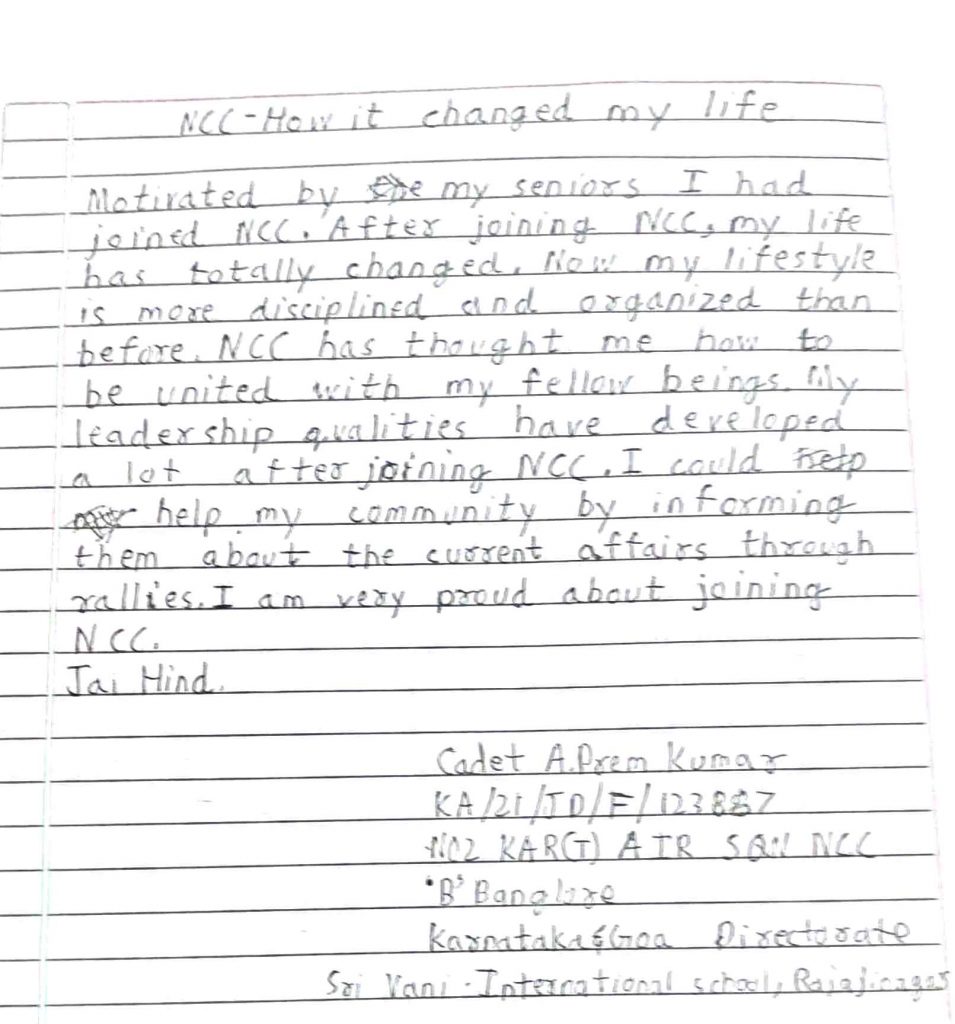 NCC-How it changed my life
Motivated by my seniors I had
joined NCC. After joining NCC, my life
has totally changed. Now my lifestyle
is more disciplined and organized than
before. NCC has thought me how to
be united with my fellow beings. My
leadership qualities have developed
a lot after joining NCC. I could
help my community by informing
them about the current affairs through
rallies. I am very proud about joining
NCC.
Jai Hind.
Cadet A.Prem Kumar
KA/21/JD/F/
KAR(T) AIR SQN NCC
'B' Banglore
Karnataka&Goa Directorate
Sri Vani International school, Rajajinagar